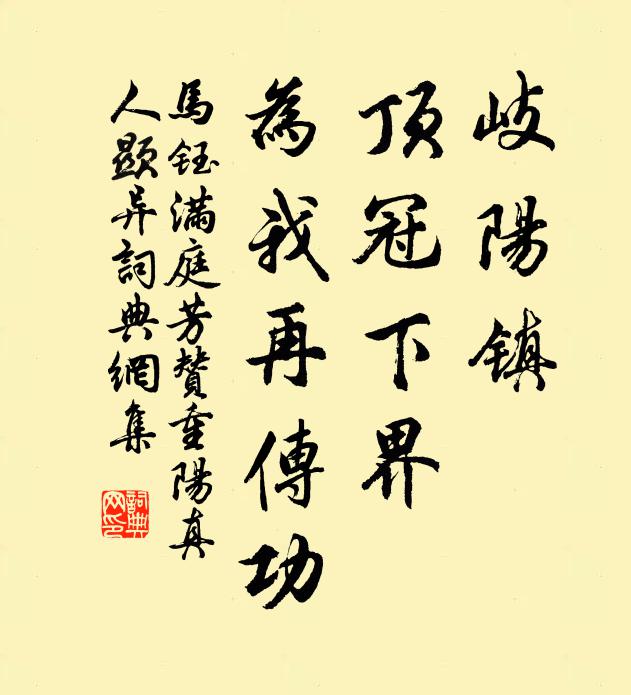 岐陽鎮
頂冠下界
為我再傳功
馬鈺滿庭芳贊重陽真
人顯异詞典網集
詞典
网印